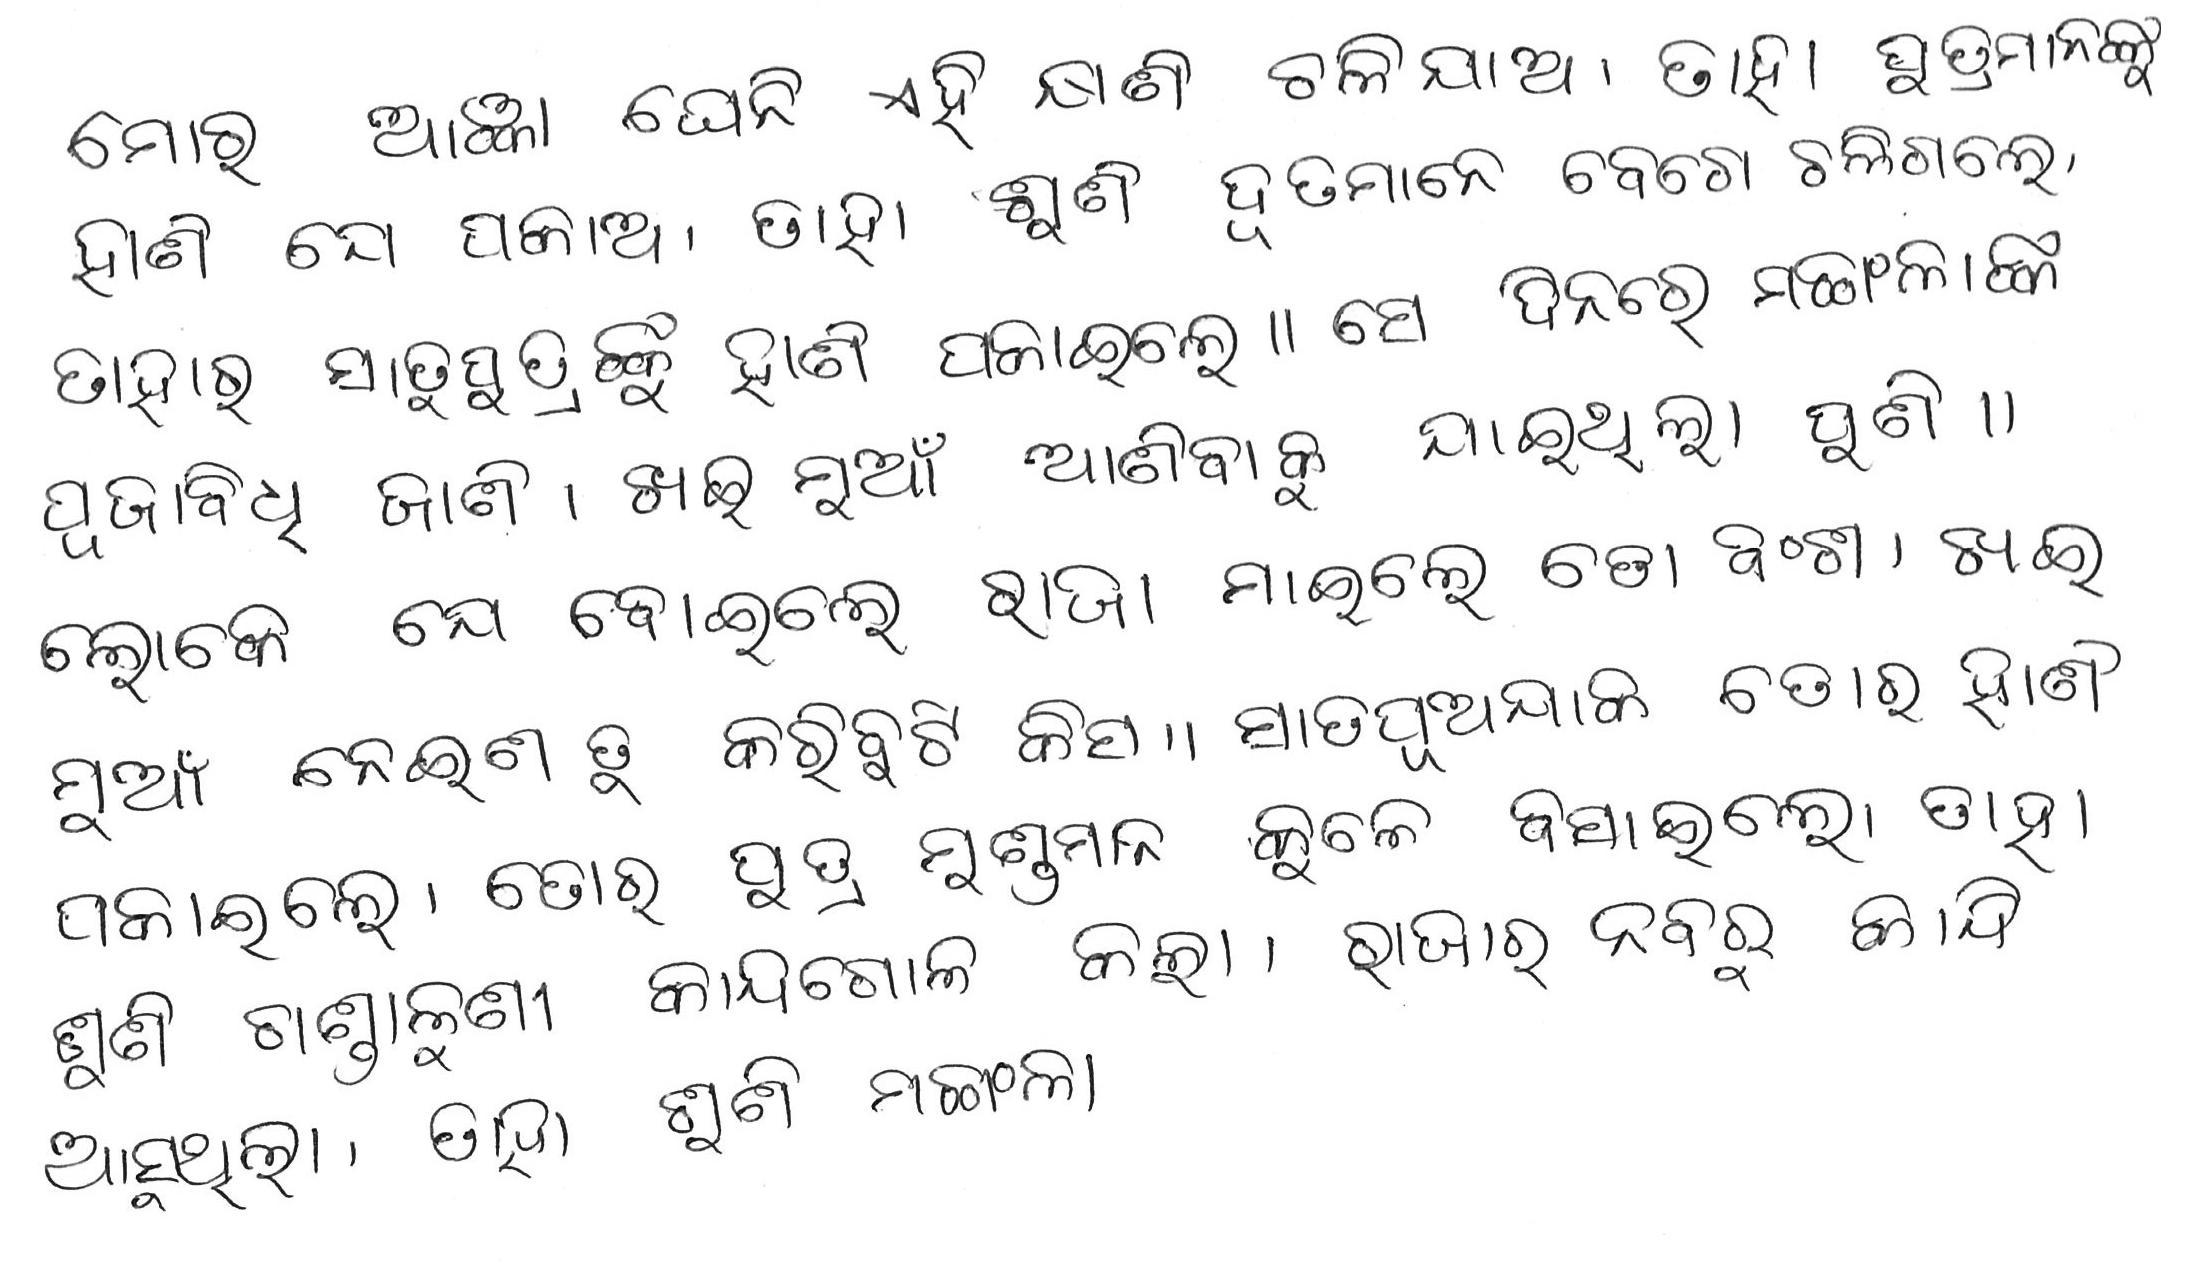 ମୋର ଆଜ୍ଞା ଘେନି ଏହି କ୍ଷଣି ଚଳିଯାଅ । ତାହା ପୁତ୍ରମାନଙ୍କୁ
ହାଣି ଯେ ପକାଅ । ତାହା ଶୁଣି ଦୂତମାନେ ବେଗେ ଚଳିଗଲେ ।
ତାହାର ସାତୁପୁତ୍ରଙ୍କୁ ହାଣି ପକାଇଲେ ॥ ସେ ଦିନରେ ମଙ୍ଗଂଳାଙ୍କ
ପୂଜାବିଧି ଜାଣି । ଖଇ ମୁଆଁ ଆଣିବାକୁ ଯାଇଥିଲା ପୁଣି ॥
ଲୋକେ ଯେ ବୋଇଲେ ରାଜା ମାଇଲେ ତୋ ବଂଶ । ଖଇ
ମୁଆଁ ନେଇଣ ତୁ କରିବୁଟି କିସ ॥ ସାତପୂଅଯାକ ତୋର ହାଣି
ପକାଇଲେ । ତୋର ପୁତ୍ର ମୁଣ୍ଡମାନ କୁଳେ ବସାଇଲେ । ତାହା
ଶୁଣି ଚାଣ୍ଡାଳୁଣୀ କାନ୍ଦିଗୋଳ କଲା । ରାଜାର ନବରୁ କାନ୍ଦି
ଆସୁଥିଲା । ତାହା ଶୁଣି ମଙ୍ଗଂଳା